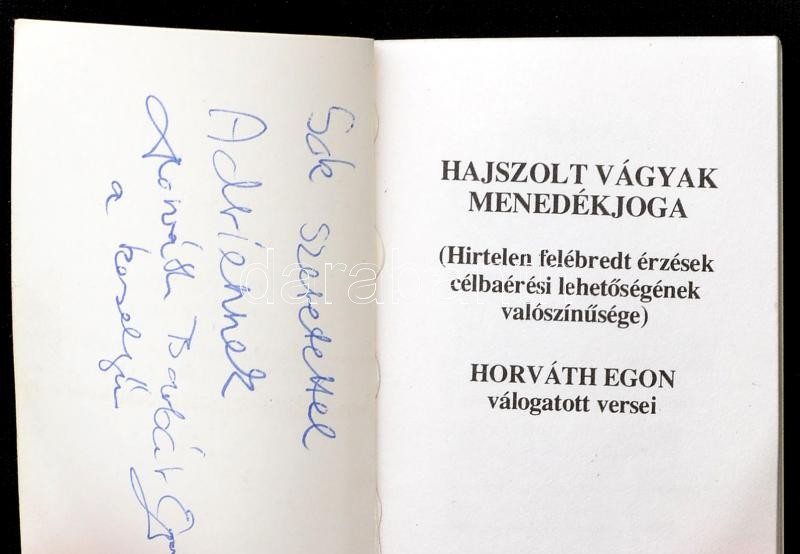 Sok szeretettel
Adriennek
Horváth Barbár Egon
a keselyű
HAJSZOLT VÁGYAK
MENEDÉKJOGA
(Hirtelen felébredt érzések
célbaérési lehetőségének
valószínűsége)
HORVÁTH EGON
válogatott versei